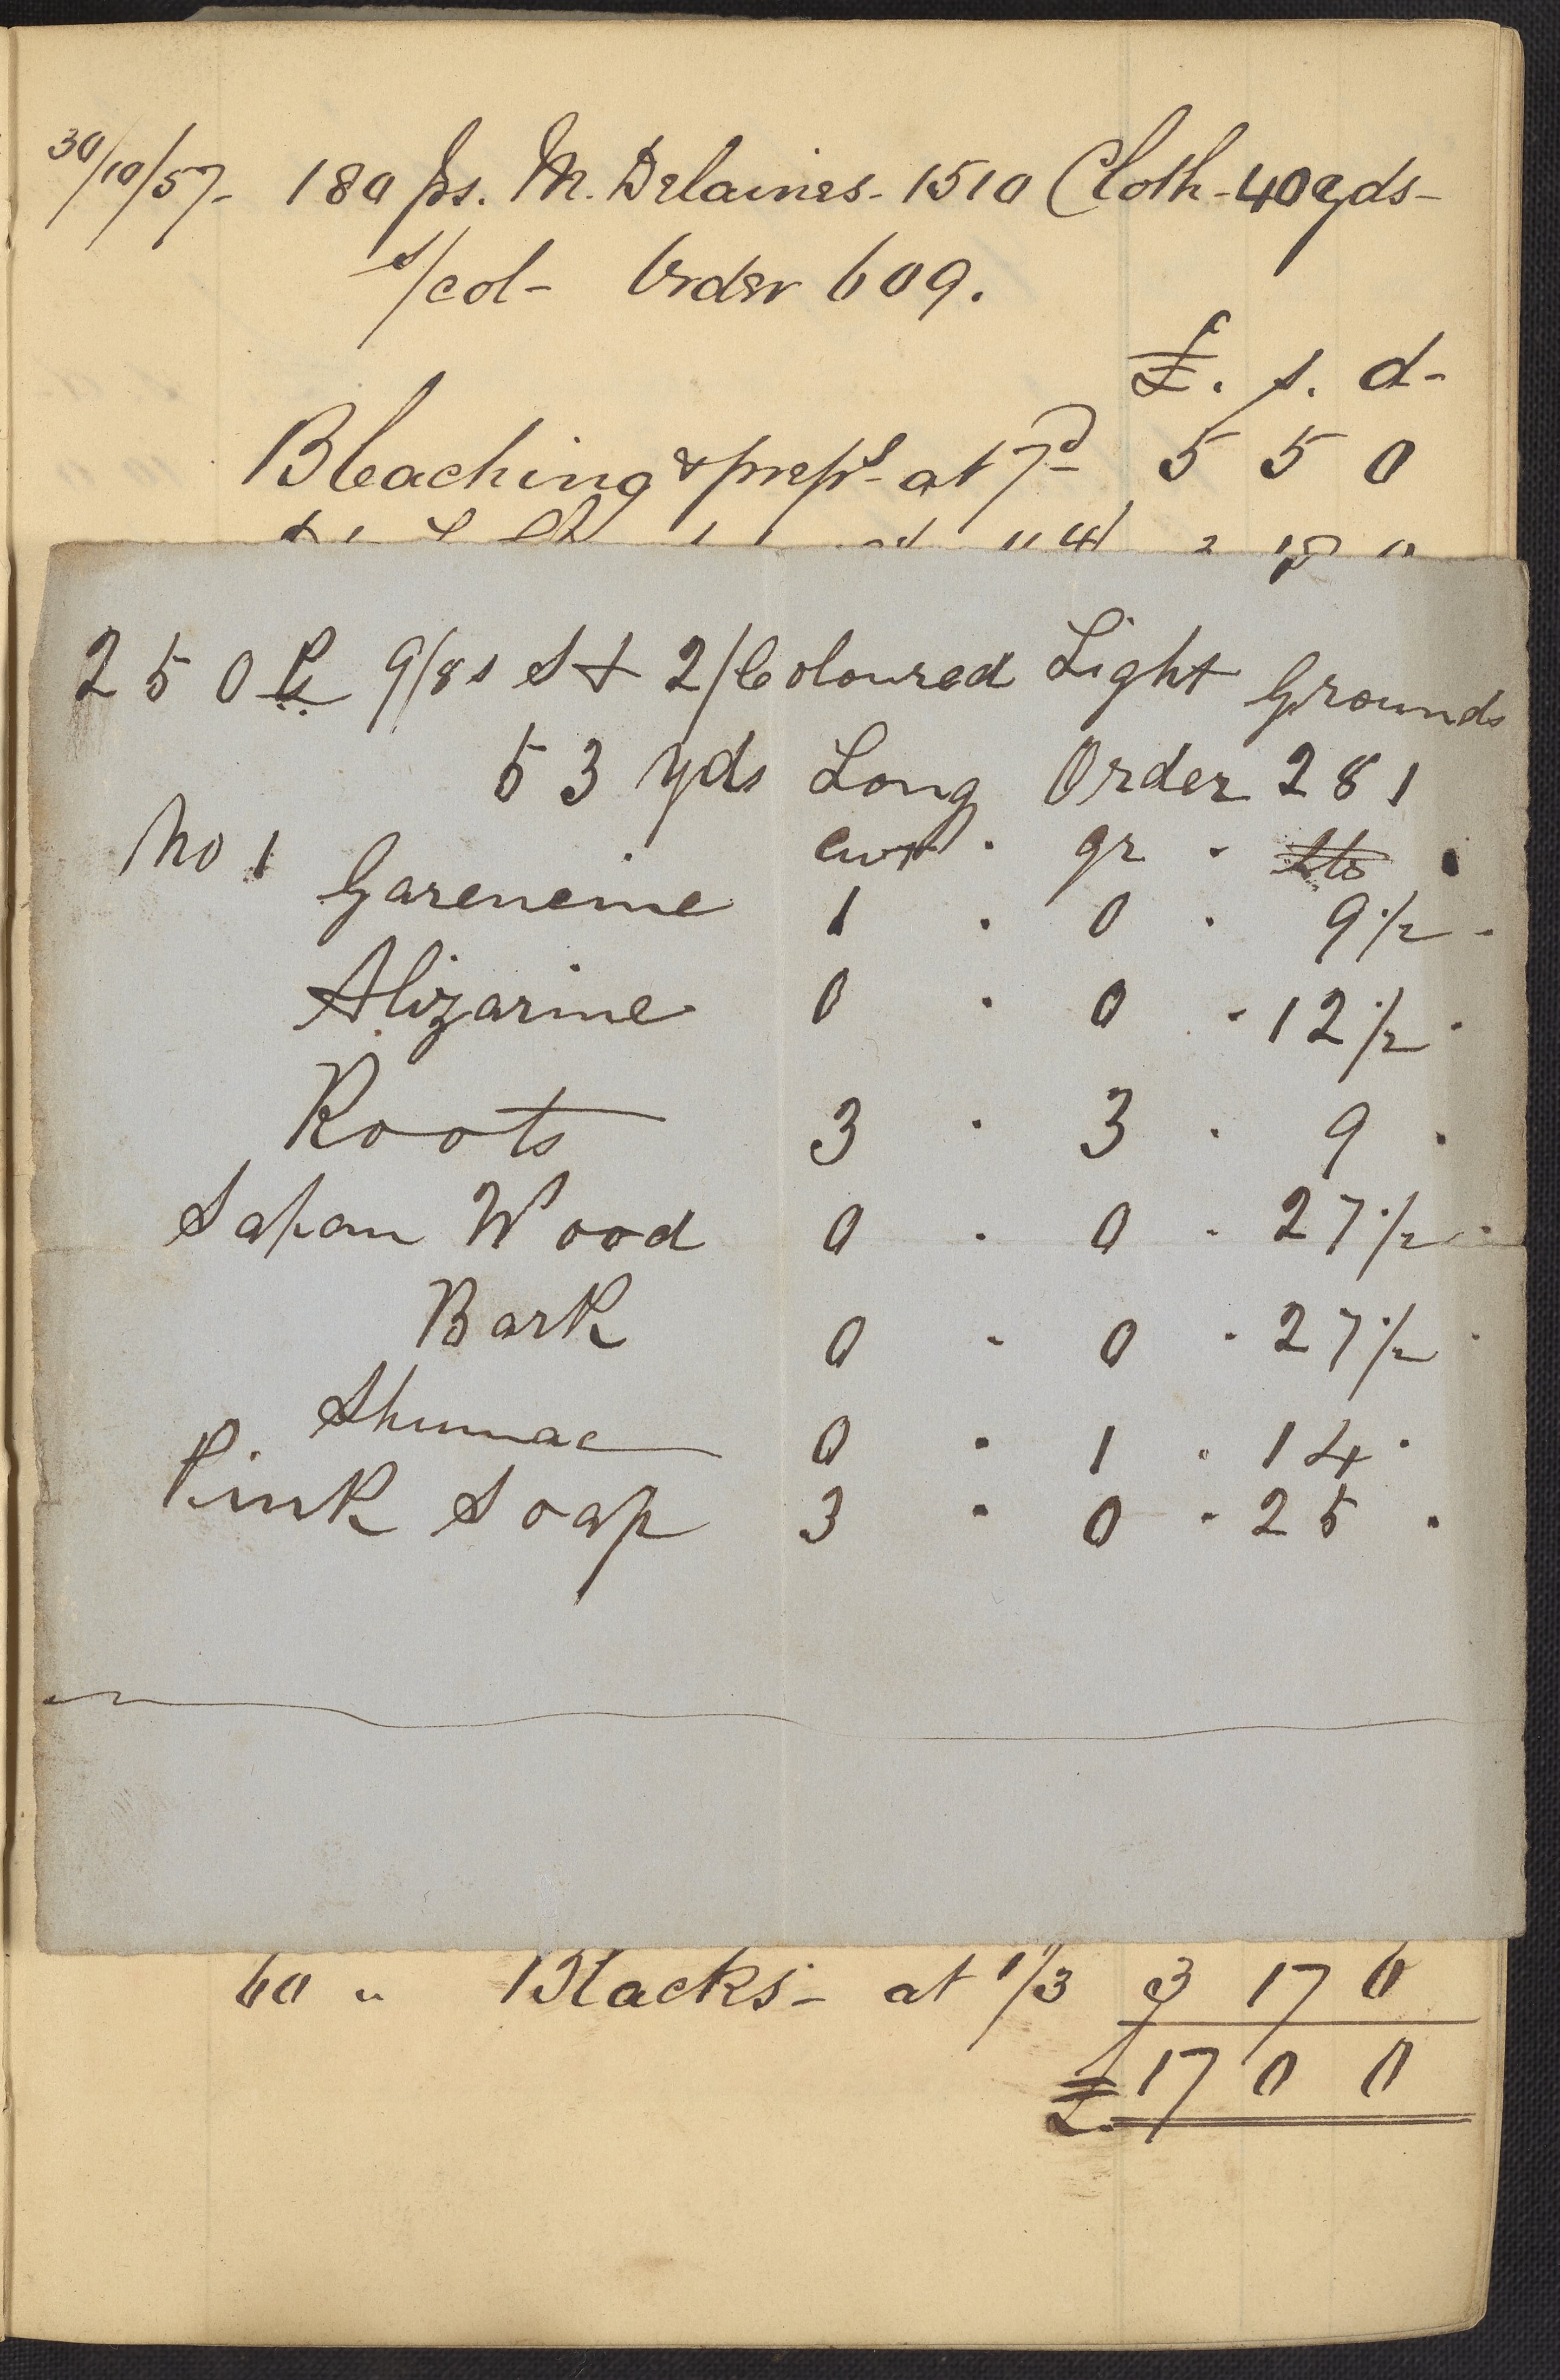 30/10/57- 180 ps. M. Delaines- 1510 Cloth-40yds-
s/col- Order 609.
£. s. d-
Bleaching & prepg at 7d 5 5 0
250 Ps 9/8s St 2/Coloured Light Grounds
53 yds Long Order 281
No 1 cwt . qr . lbs
Gareneine 1 . 0 . 9 1/2 .
Alizarine 0 . 0 . 12 1/2 .
Roots 3 . 3 . 9 .
Sapan Wood 0 . 0 . 27 1/2 .
Bark 0 . 0 . 27 1/2 .
Shumac 0 . 1 . 14 .
Pink Soap 3 . 0 . 25 .
60 " Blacks- at 1/3 3 17 6
£ 17 0 0